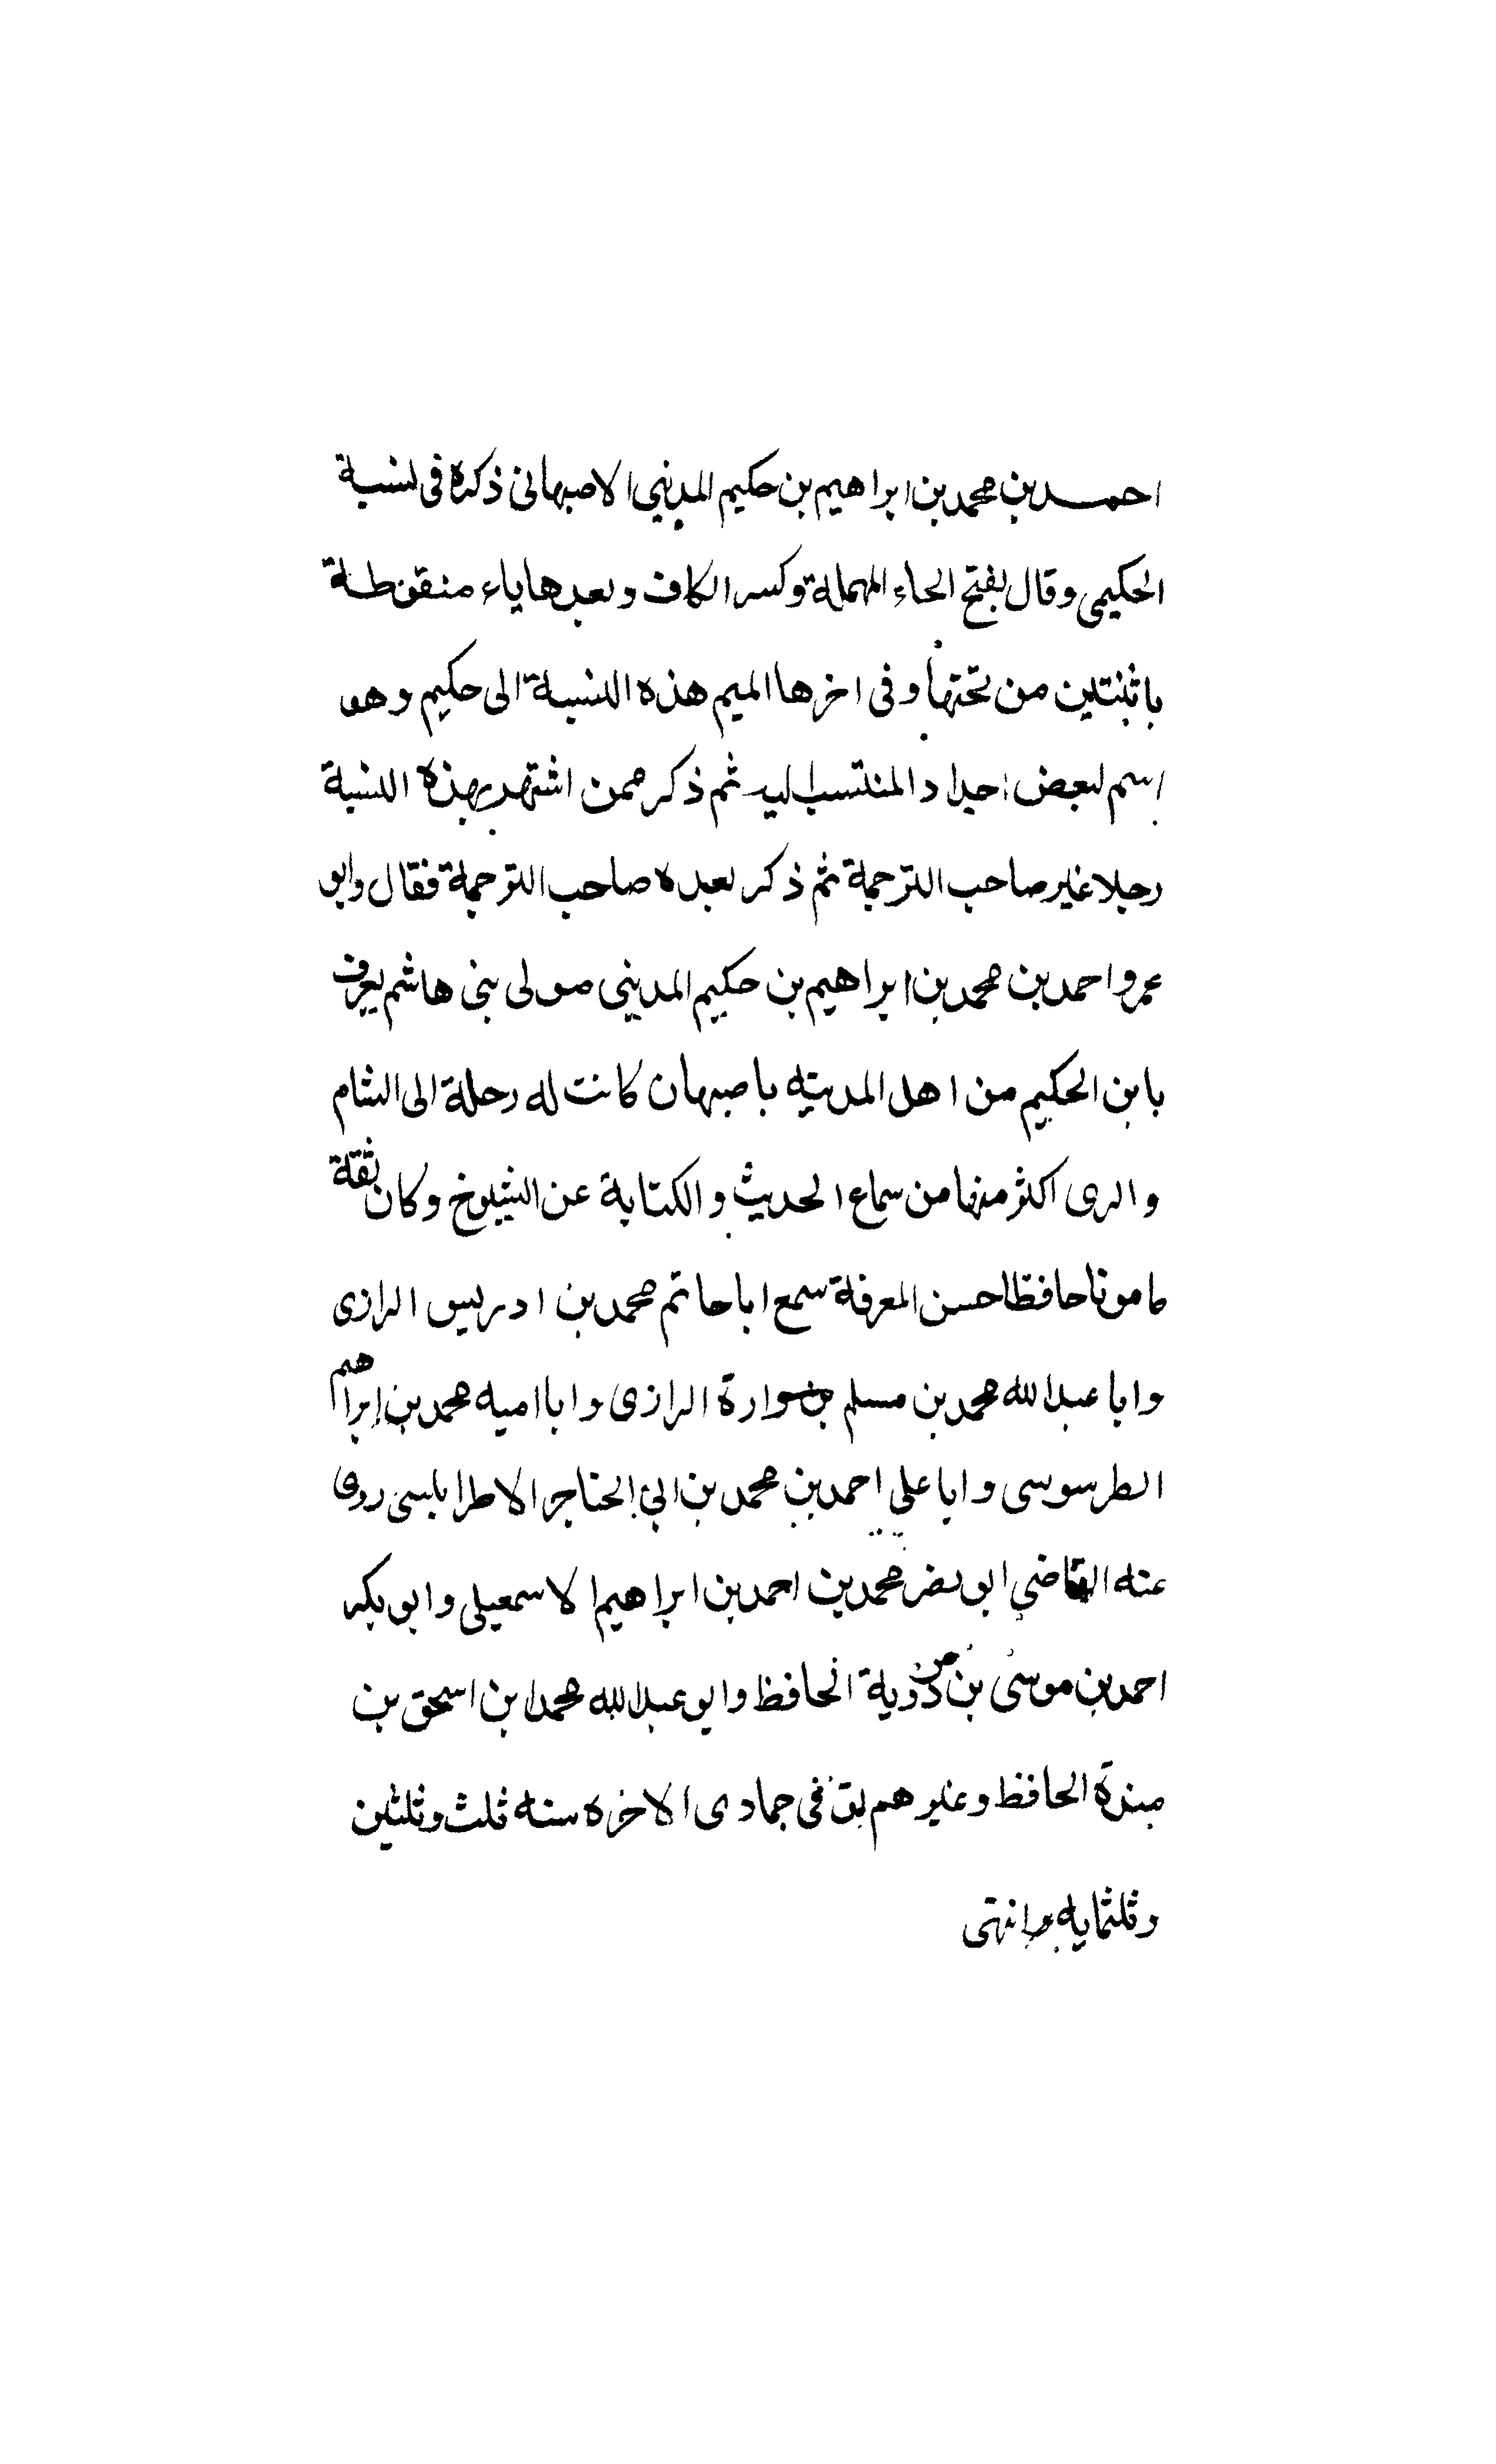 احمد بن محمد بن ابراهيم بن حكيم المديني الاصبهانى ذكره فى نسبة
الحكيمى وقال بفتح الحاء المهملة وكسر الكاف وبعدها ياء منقوطة
باثنتين من تحتها وفى اخرها الميم هذه النسبة الى حكيم وهو
اسم لبعض اجداد المنتسب اليه ثم ذكر ممن اشتهر بهذه النسبة
رجلا غير صاحب الترجمة ثم ذكر بعده صاحب الترجمة فقال وابو
عمرو احمد بن محمد بن ابراهيم بن حكيم المدينى مولى بنى هاشم يعرف
بابن الحكيم من اهل المدينه باصبهان كانت له رحلة الى الشام
والرى اكثر منها من سماع الحديث والكتابة عن الشيوخ وكان ثقة
مامونا حافظا حسن المعرفة سمع ابا حاتم محمد بن ادريس الرازى
وابا عبد الله محمد بن مسلم بن وارة الرازى وابا اميه محمد بن ابراهيم
الطرسوسى وابا على احمد بن محمد بن ابى الحناجر الاطرابلسى روى
عنه القاضي ابو نصر محمد بن احمد بن ابراهيم الاسمعيلى وابو بكر
احمد بن موسى بن مردوية الحافظ وابو عبد الله محمد ابن اسحق بن
مندة الحافظ وغيرهم توفى جمادى الاخره سنه ثلث وثلثين
وثلثمايه انتهى